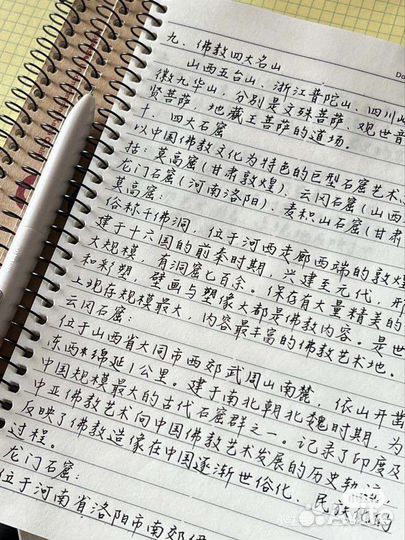 九、佛教四大名山
山西五台山、浙江普陀山、四川峨
徽九华山，分别是文殊菩萨、观世音
贤菩萨、地藏王菩萨的道场。
十、四大石窟
以中国佛教文化为特色的巨型石窟艺术
括：莫高窟(甘肃敦煌)、云冈石窟(山西
龙门石窟(河南洛阳)、麦积山石窟(甘肃
莫高窟：
俗称千佛洞，位于河西走廊西端的敦煌
建于十六国的前秦时期，兴建至元代，形
大规模，有洞窟七百余。保存有大量精美的
和彩塑，壁画与塑像大都是佛教内容。是世
上现存规模最大，内容最丰富的佛教艺术地。
云冈石窟：
位于山西省大同市西郊武周山南麓，依山开凿
东西*绵延1公里。建于南北朝北魏时期，为
中国规模最大的古代石窟群之一。记录了印度及
中亚佛教艺术向中国佛教艺术发展的历史轨
反映了佛教造像在中国逐渐世俗化、民族化的
过程。
龙门石窟：
位于河南省洛阳市南郊伊